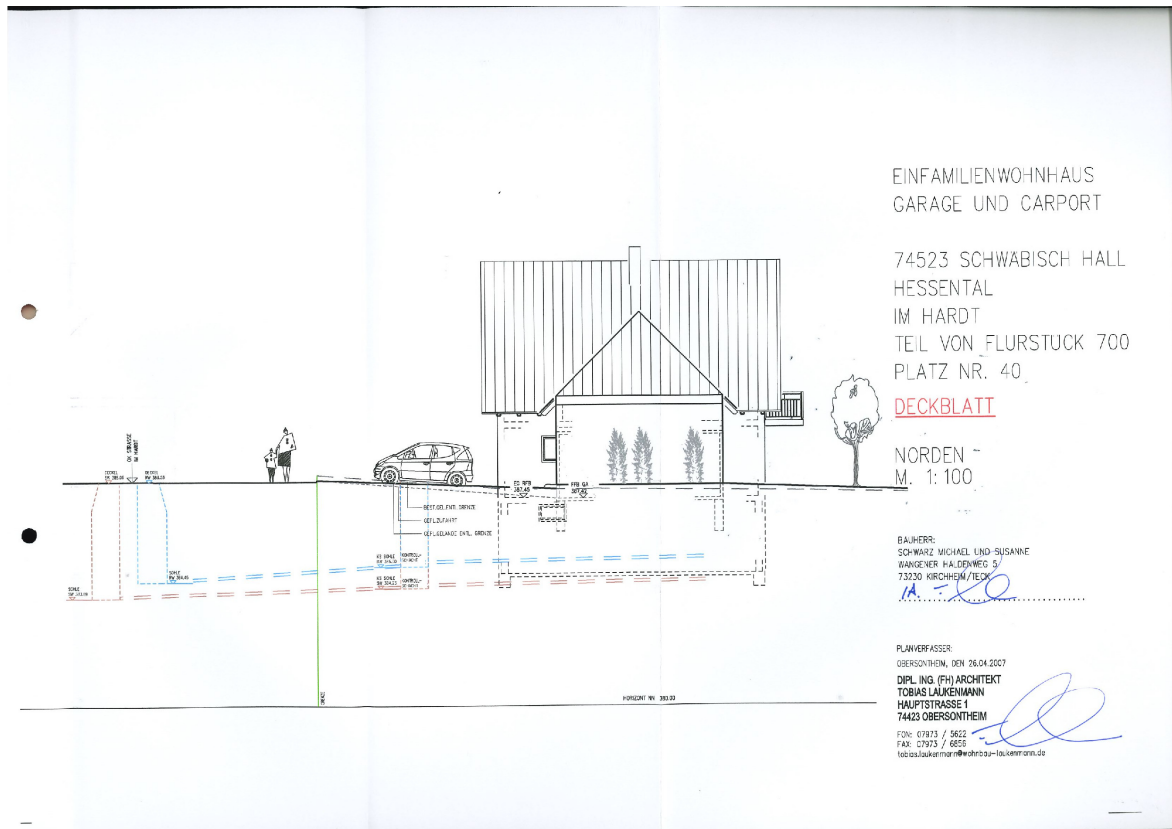 EINFAMILIENWOHNHAUS
GARAGE UND CARPORT
74523 SCHWÄBISCH HALL
HESSENTAL
IM HARDT
TEIL VON FLURSTÜCK 700
PLATZ NR. 40
DECKBLATT
NORDEN
M. 1:100
BAUHERR:
SCHWARZ MICHAEL UND SUSANNE
WANGENER HALDENWEG 5
73230 KIRCHHEIM/TECK
PLANVERFASSER:
OBERSONTHEIM, DEN 26.04.2007
DIPL. ING. (FH) ARCHITEKT
TOBIAS LAUKENMANN
HAUPTSTRASSE 1
74423 OBERSONTHEIM
FON: 07973 / 5622
FAX: 07973 / 6856
tobias.laukenmann@wohnbau-laukenmann.de
OK STRASSE
IM HARDT
DECKEL
DECKEL
SOHLE
SOHLE
EG RFB
387.45
FFB GA
BEST.GEL.ENTL.GRENZE
GEPL.ZUFAHRT
GEPL.GELÄNDE ENTL. GRENZE
KS SOHLE
KONTROLL-
KS SOHLE
KONTROLL-
GRENZE
HORIZONT NN 380.00